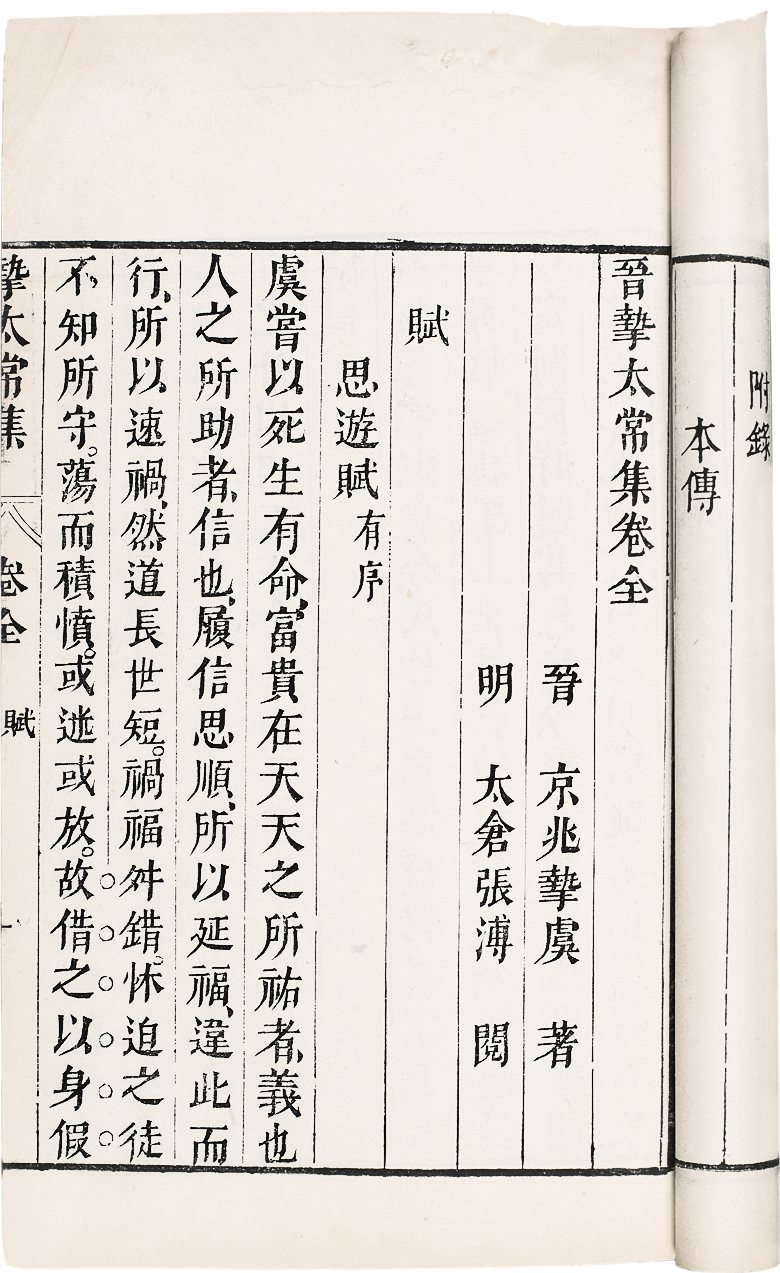 附錄
本傳
晉摯太常集卷全
晉 京兆摯虞 著
明 太倉張溥 閱
賦
思遊賦有序
虞嘗以死生有命、富貴在天天之所祐者、義也
人之所助者、信也、履信思順、所以延福、違此而
行、所以速禍、然道長世短。禍福舛錯。怵迫之徒
不知所守。蕩而積憤。或迯或放。故借之以身假
摯太常集 卷全 賦 一